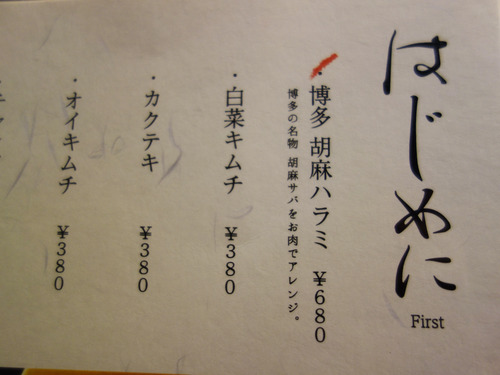 はじめに
First
・博多 胡麻ハラミ ¥680
博多の名物 胡麻サバをお肉でアレンジ。
・白菜キムチ ¥380
・カクテキ ¥380
・オイキムチ ¥380